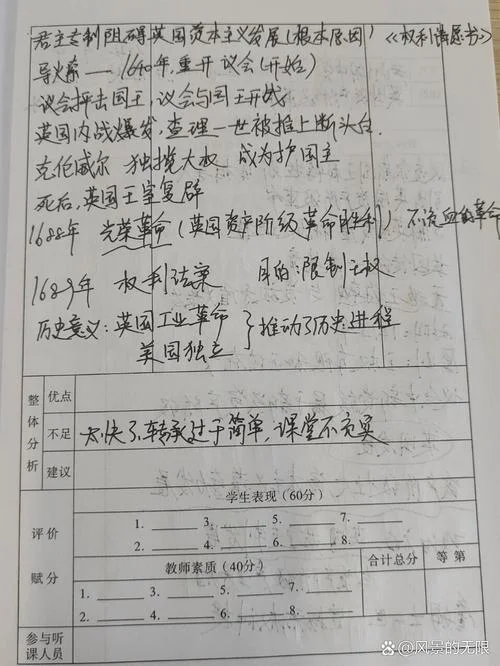 君主专制阻碍英国资本主义发展(根本原因) 《权利请愿书》
导火索——1640年,重开议会(开始)
议会抨击国王,议会与国王开战
英国内战爆发,查理一世被推上断头台.
克伦威尔 独揽大权 成为护国主
死后,英国王室复辟
1688年 光荣革命(英国资产阶级革命胜利) 不流血的革命
1689年 权利法案 目的:限制王权
历史意义:英国工业革命 } 推动了历史进程
美国独立
整体分析
优点
不足 太快了,转承过于简单,课堂不充实
建议
评价赋分
学生表现(60分)
1. 3. 5. 7.
2. 4. 6. 8.
教师素质(40分) 合计总分 等第
1. 3. 5. 7.
2. 4. 6. 8.
参与听课人员
@风景的无限